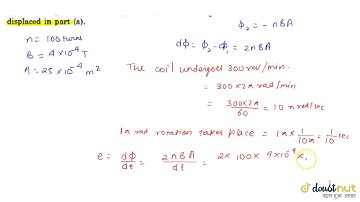 displaced in part (a).
n = 100 turns
B = 4 × 10⁻⁴ T
A = 25 × 10⁻⁴ m²
ϕ₂ = - nBA
dϕ = ϕ₂ - ϕ₁ = 2nBA
The coil undergoes 300 rev/min.
= 300 × 2π rad/min
= 300 × 2π / 60 = 10 π rad/sec
1π rad rotation takes place = 1π × 1/10π = 1/10 sec
e = dϕ/dt = 2nBA/dt = 2 × 100 × 4 × 10⁻⁴ ×
doubtnut